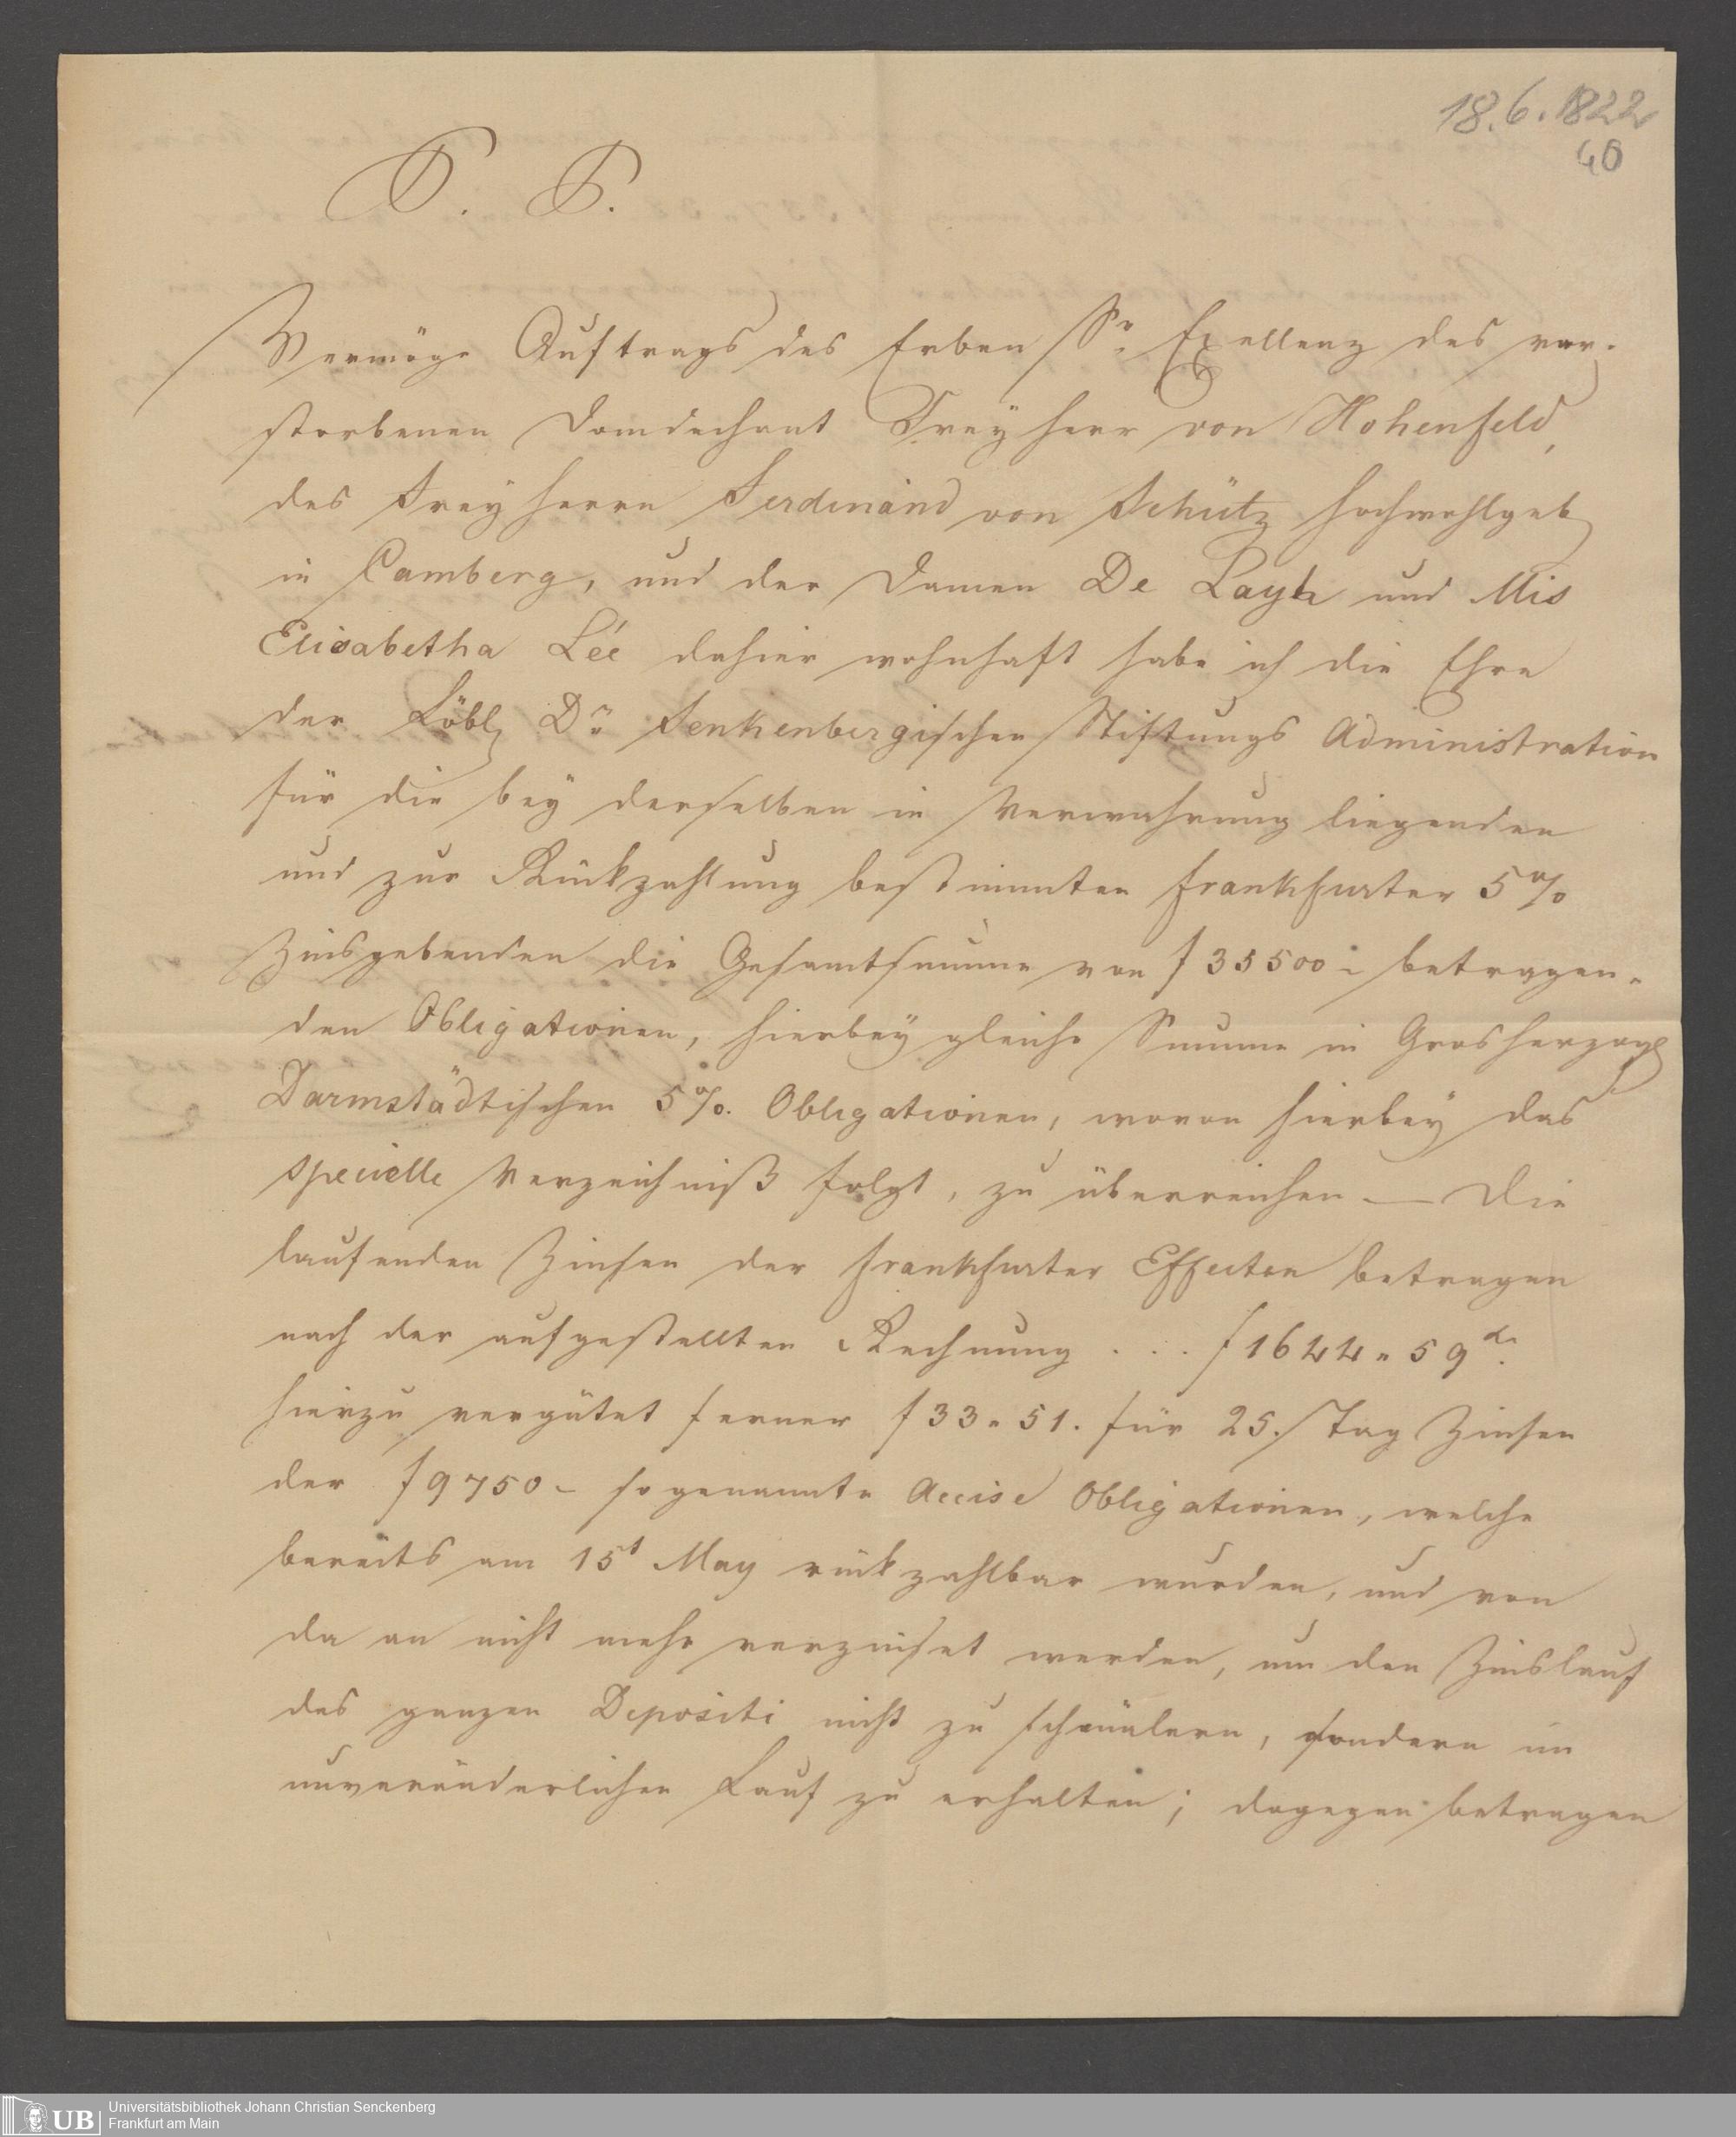 18.6.1822
40
P. P.
Vermöge Auftrags des Erben Sr. Exellenz des ver-
storbenen Domdechant Freyherr von Hohenfeld,
des Freyherrn Ferdinand von Schütz Hochwohlgeb
in Camberg, und der Damen De Layh und Mis
Elisabetha Lée dahier wohnhaft habe ich die Ehre
der Löbl Dr. Senkenbergischen Stiftungs Administration
für die bey derselben in Verwahrung liegenden
und zur Rückzahlung bestimmten Frankfurter 5 %
Zinsgebenden die Gesamtsumme von f 35500 – betragen-
den Obligationen, hierbey gleiche Summe in Grosherzogl
Darmstädtischen 5 %. Obligationen, wovon hierbey das
specielle Verzeichniß folgt, zu überreichen — Die
laufenden Zinsen der Frankfurter Effecten betragen
nach der aufgestellten Rechnung . . . f 1644 „ 59
hierzu vergütet ferner f 33 „ 51. für 25. Tag Zinsen
der f 9750 – sogenannte Accise Obligationen, welche
bereits am 15t May rückzahlbar wurden, und von
da an nicht mehr verzinset werden, um den Zinslauf
des ganzen Depositi nicht zu schmälern, sondern im
unveränderlichen Lauf zu erhalten; dagegen betragen
UB
Universitätsbibliothek Johann Christian Senckenberg
Frankfurt am Main